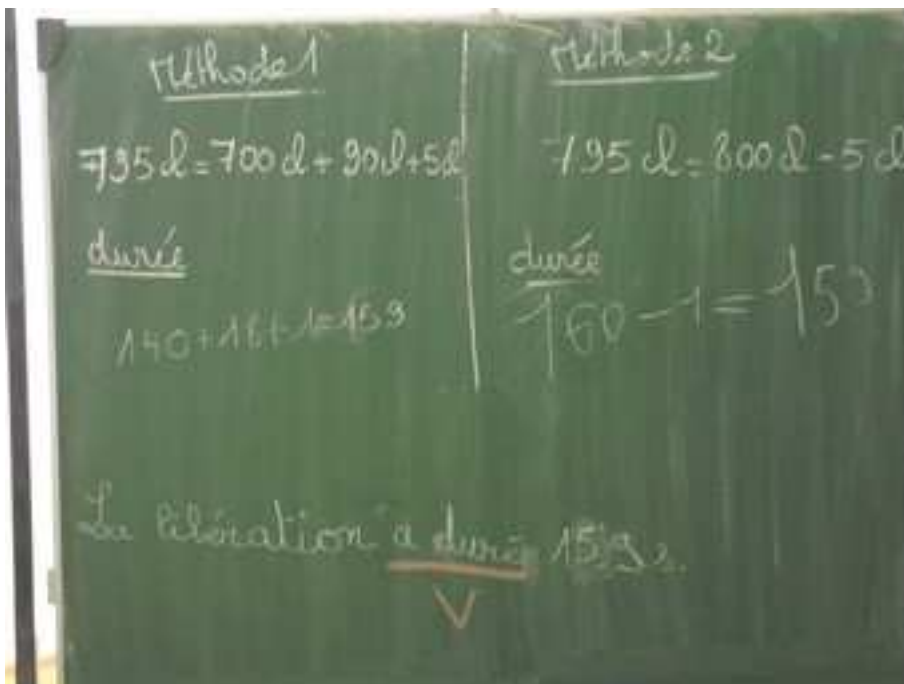 Méthode 1
795 d = 700 d + 90d + 5d
durée
140 + 18 + 1 = 159
Méthode 2
795 d = 800 d - 5 d
durée
160 - 1 = 159
La libération a durée 159
V